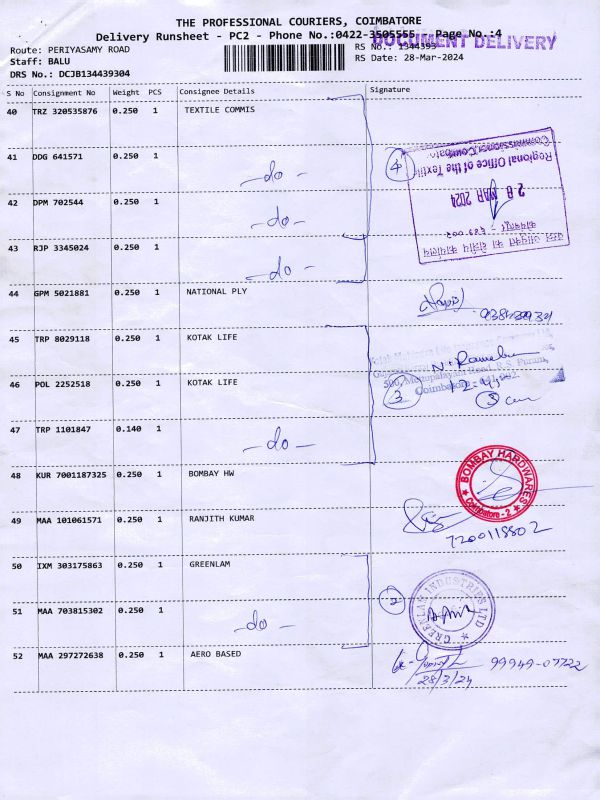 THE PROFESSIONAL COURIERS, COIMBATORE
Delivery Runsheet - PC2 - Phone No.:0422-3505555 Page No.:4
DOCUMENT DELIVERY
Route: PERIYASAMY ROAD
RS No.: 1344393
Staff: BALU
RS Date: 28-Mar-2024
DRS No.: DCJB134439304
S No Consignment No Weight PCS Consignee Details Signature
40 TRZ 320535876 0.250 1 TEXTILE COMMIS
41 DDG 641571 0.250 1 -do-
4
Regional Office of the Textile
28 MAR 2024
42 DPM 702544 0.250 1 -do-
43 RJP 3345024 0.250 1 -do-
44 GPM 5021881 0.250 1 NATIONAL PLY
45 TRP 8029118 0.250 1 KOTAK LIFE
46 POL 2252518 0.250 1 KOTAK LIFE
3
47 TRP 1101847 0.140 1 -do-
48 KUR 7001187325 0.250 1 BOMBAY HW
BOMBAY HARDWARES
Coimbatore - 2
49 MAA 101061571 0.250 1 RANJITH KUMAR
7200118802
50 IXM 303175863 0.250 1 GREENLAM
2
GREENLAM INDUSTRIES LTD
51 MAA 703815302 0.250 1 -do-
52 MAA 297272638 0.250 1 AERO BASED
99949-07722
28/3/24